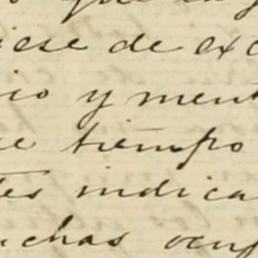 que
iese de exc
io y ment
e tiempo
tes indica
uchas ocup